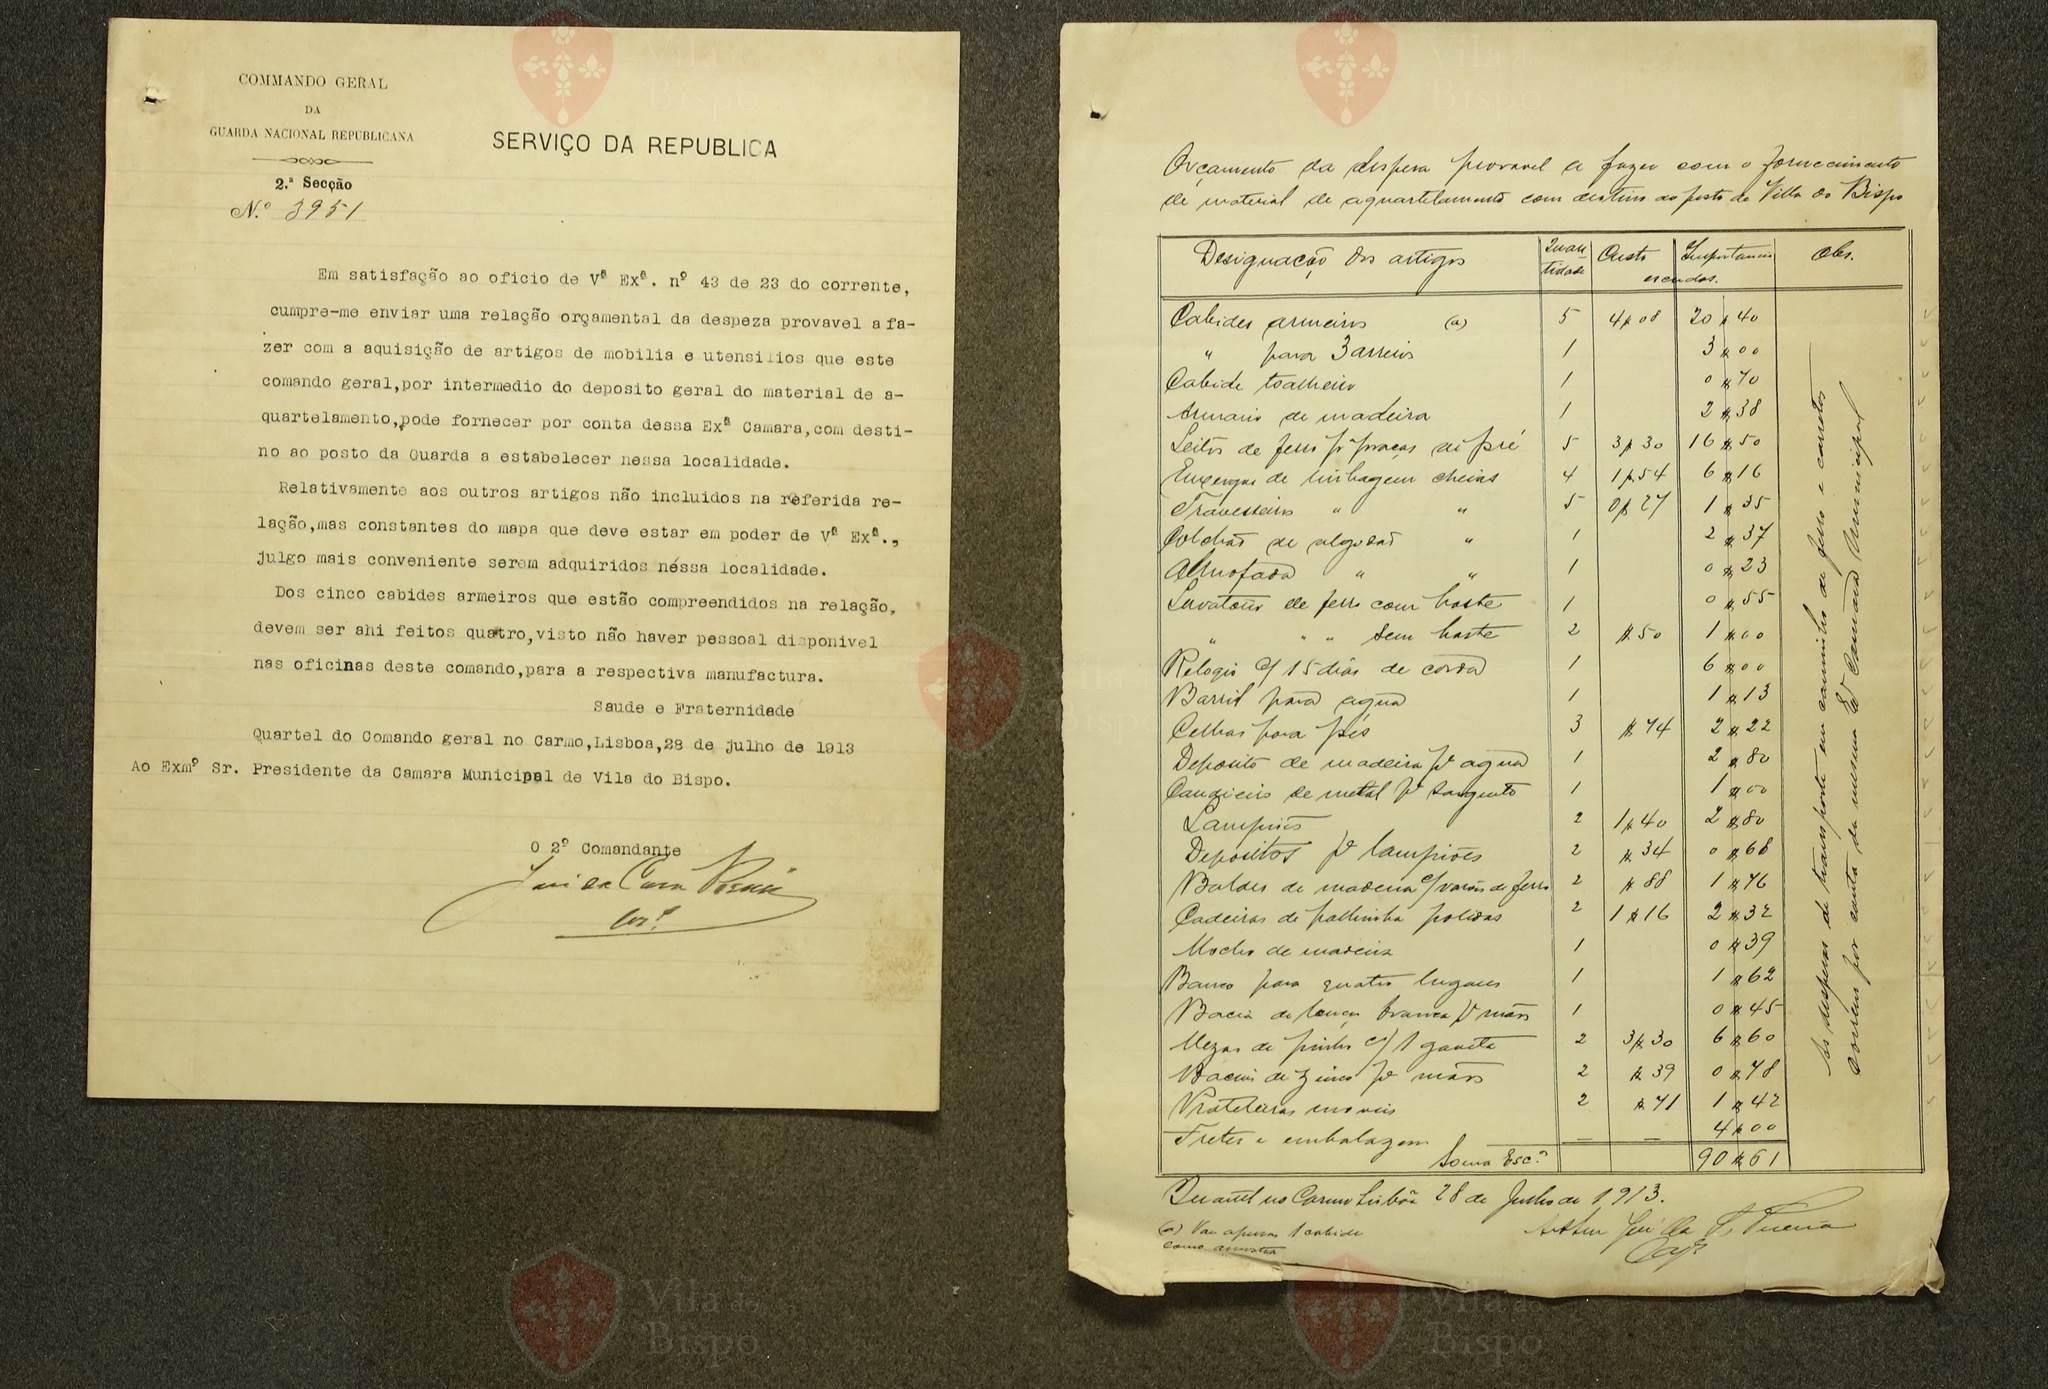 COMMANDO GERAL
DA
GUARDA NACIONAL REPUBLICANA
2.ª Secção
N.º 3951
SERVIÇO DA REPUBLICA
Em satisfação ao oficio de Vª Exª. nº 43 de 23 do corrente,
cumpre-me enviar uma relação orçamental da despeza provavel a fa-
zer com a aquisição de artigos de mobilia e utensilios que este
comando geral,por intermedio do deposito geral do material de a-
quartelamento,pode fornecer por conta dessa Exª Camara,com desti-
no ao posto da Guarda a estabelecer nessa localidade.
Relativamente aos outros artigos não incluidos na referida re-
lação,mas constantes do mapa que deve estar em poder de Vª Exª.,
julgo mais conveniente serem adquiridos néssa localidade.
Dos cinco cabides armeiros que estão compreendidos na relação,
devem ser ahi feitos quatro,visto não haver pessoal disponivel
nas oficinas deste comando,para a respectiva manufactura.
Saude e Fraternidade
Quartel do Comando geral no Carmo,Lisboa,28 de julho de 1913
Ao Exmº Sr. Presidente da Camara Municipal de Vila do Bispo.
O 2º Comandante
Orçamento da despesa provavel a fazer com o fornecimento
de material de aquartelamento com destino ao posto de Villa do Bispo
Designação dos artigos Quantidade Custo Importancia Obs.
escudos.
Cabides armeiros (a) 5 4$08 20$40
" para 3 arreios 1 3$00
Cabide toalheiro 1 0$70
Armario de madeira 1 2$38
Leitos de ferro pª praças de pré 5 3$30 16$50
Enxergas de linhagem cheias 4 1$54 6$16
Travesseiros " " 5 0$27 1$35
Colchão de algodão " 1 2$37
Almofada " " 1 0$23
Lavatorio de ferro com haste 1 0$55
" " " sem haste 2 $50 1$00
Relogio c/ 15 dias de corda 1 6$00
Barril para agua 1 1$13
Celhas para pés 3 $74 2$22
Deposito de madeira pª agua 1 2$80
Candieiro de metal pª sargento 1 1$00
Lampiões 2 1$40 2$80
Depositos pª lampiões 2 $34 0$68
Baldes de madeira c/ varões de ferro 2 $88 1$76
Cadeiras de palhinha polidas 2 1$16 2$32
Mocho de madeira 1 0$39
Banco para quatro lugares 1 1$62
Bacia de louça branca pª mãos 1 0$45
Mezas de pinho c/ 1 gaveta 2 3$30 6$60
Bacias de zinco pª mãos 2 $39 0$78
Prateleiras moveis 2 $71 1$42
Fretes e embalagem — — 4$00
Soma Esc.º 90$61
As despesas de transporte em caminho de ferro e carretos
correm por conta da mesma Exª Camara Municipal
Quartel no Carmo Lisboa 28 de Julho de 1913.
(a) Vae apenas 1 cabide
como amostra
Vila do
Bispo
Vila do
Bispo
Vila do
Bispo
Vila do
Bispo
Vila do
Bispo